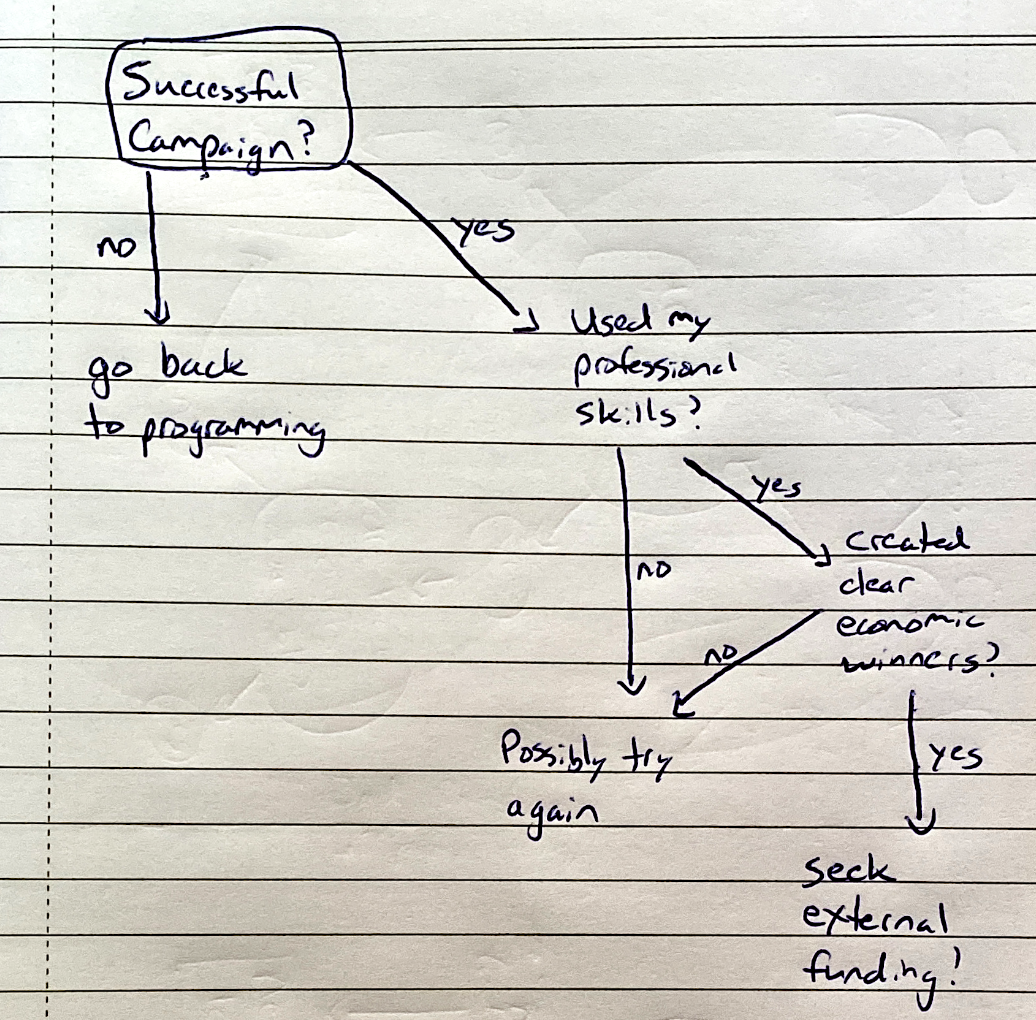 Successful
Campaign?
no
yes
go back
to programming
Used my
professional
skills?
yes
no
created
clear
economic
winners?
no
yes
Possibly try
again
seek
external
funding!